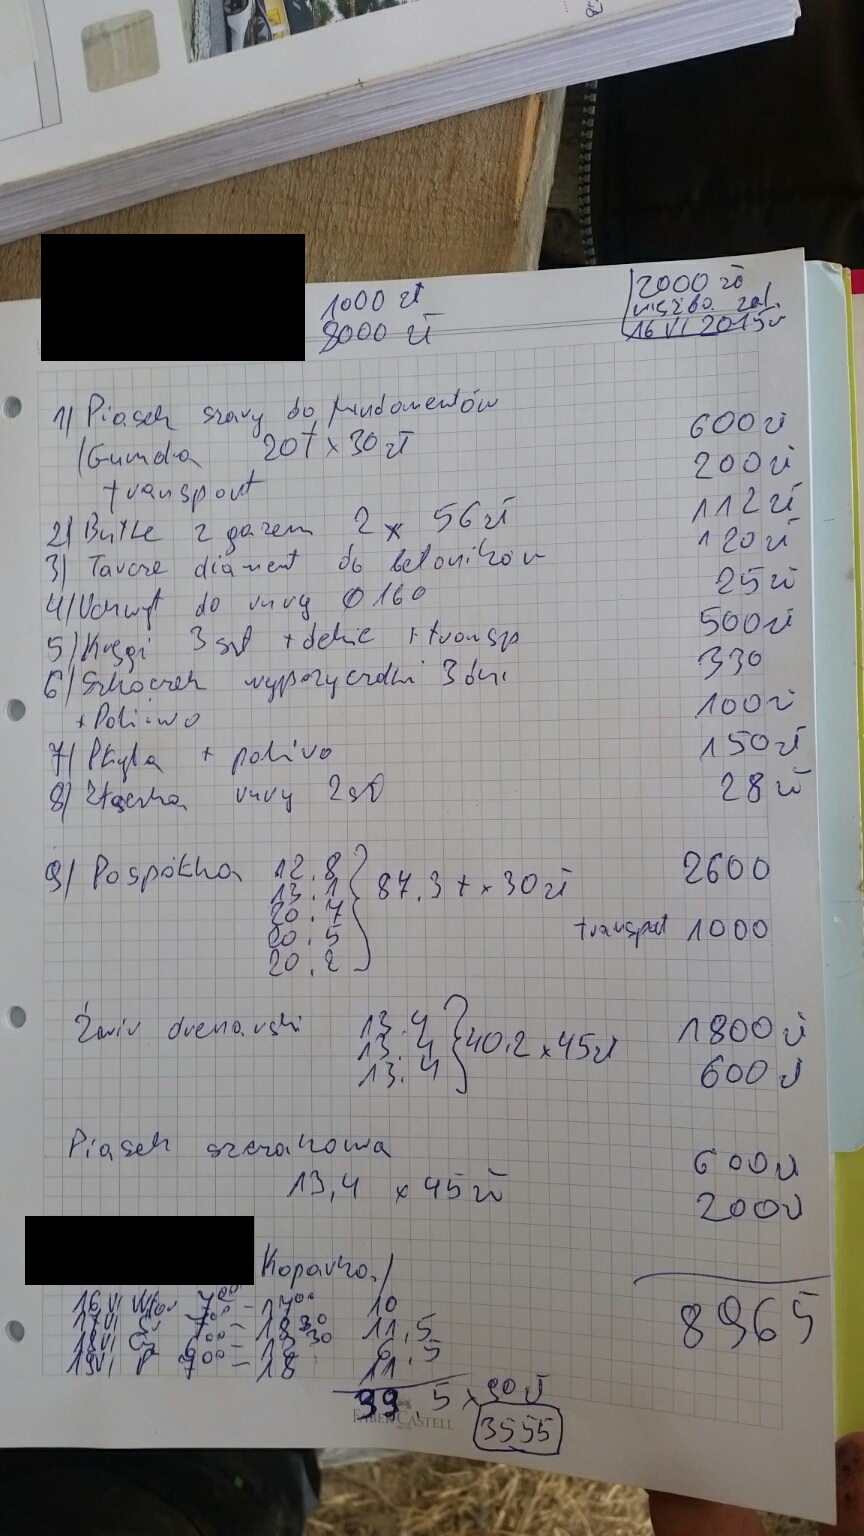 1000 zł
8000 zł
2000 zł
16 VI 2015r
1) Piasek szary do fundamentów
600 zł
/Gumda 20t x 30 zł
200 zł
transport
2) Butle z gazem 2 x 56 zł
112 zł
3) Tarcze diament do betoników
120 zł
4) Uchwyt do rury Ø160
25 zł
5) Kręgi 3szt + dekie + transp
500 zł
6) Szkoczek wypożyczalni 3 dni
330
+ Paliwo
100 zł
7) Płyta + paliwo
150 zł
8) Złączka rury 2szt
28 zł
9) Pospółka 12.8
13.1
20.7
20.5
20.2
87.3 t x 30 zł
2600
transport 1000
Żwir drenarski 13.4
13.4
13.4
40.2 x 45zł
1800 zł
600 zł
Piasek szczakowa
600 zł
13,4 x 45 zł
200 zł
Koparka/
16 VI Wtor 7⁰⁰ - 17⁰⁰ 10
17 VI Śr 7⁰⁰ - 18³⁰ 11,5
18 VI Cz
19 VI P 7⁰⁰ - 18 11
8965
39,5 x 90 zł
3555
FABER-CASTELL